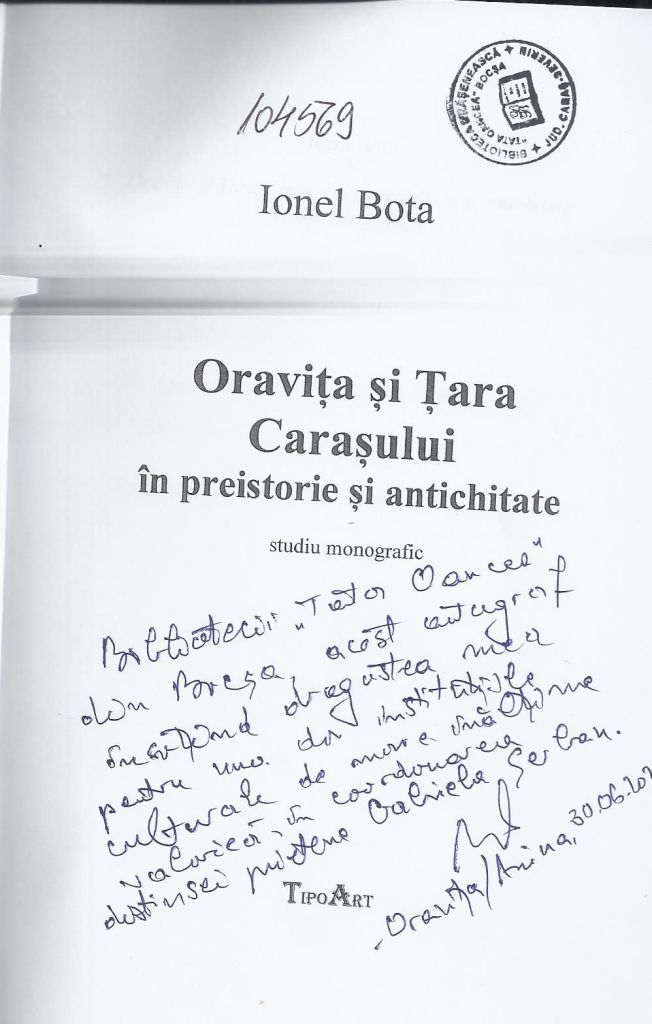 104569
BIBLIOTECA ORĂȘENEASCĂ ✦ JUD. CARAȘ-SEVERIN ✦
"TATA OANCEA" BOCȘA
Ionel Bota
Oravița și Țara
Carașului
în preistorie și antichitate
studiu monografic
Bibliotecii „Tata Oancea"
din Bocșa, acest autograf
însoțind dragostea mea
pentru una din instituțiile
culturale de mare înălțime
valorică, în coordonarea
distinsei prietene Gabriela Șerban.
Oravița/Anina, 30.06.20
TIPOART